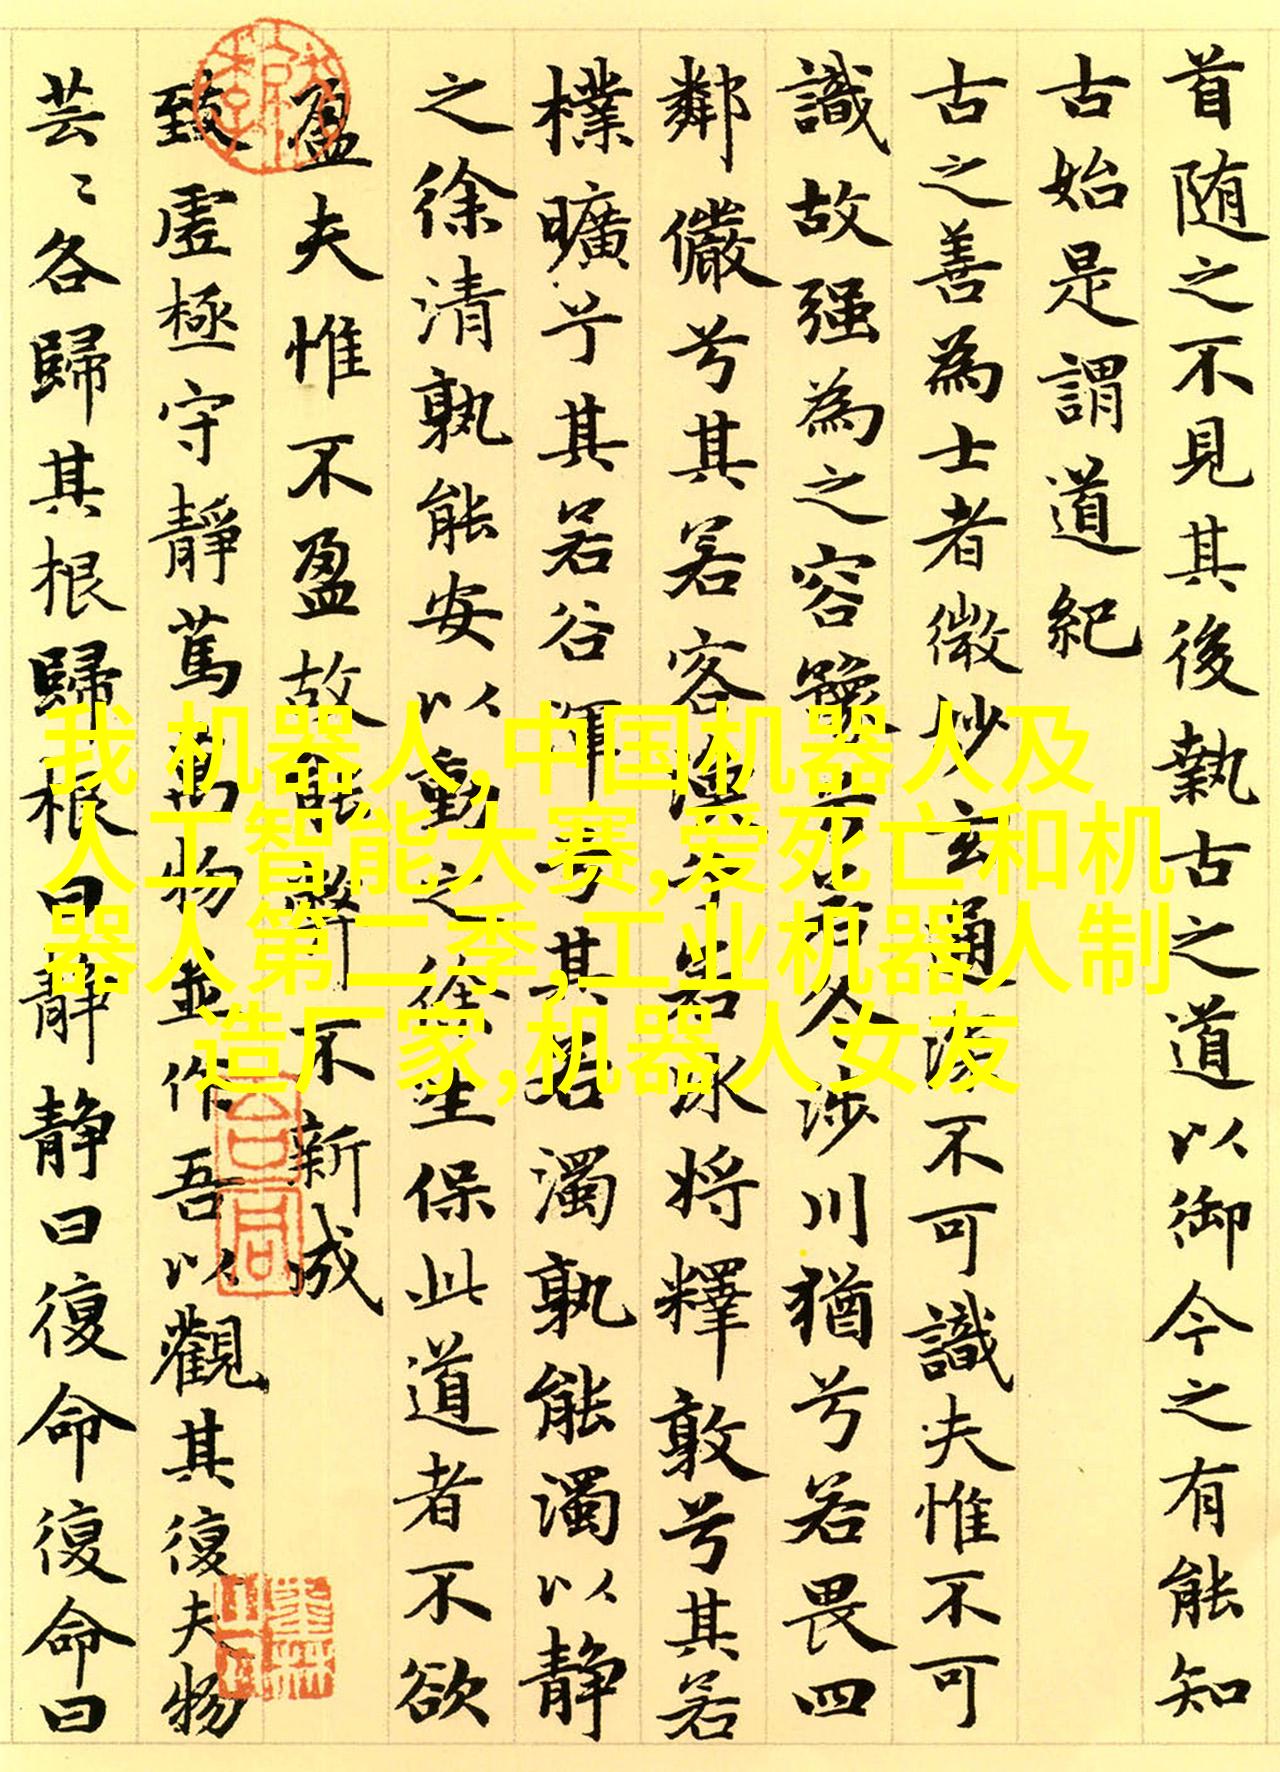 首随之不見其後執古之道以御今之有能知
古始是謂道紀
古之善為士者微妙玄通深不可識夫惟不可
識故强為之容豫兮若冬涉川猶兮若畏四
鄰儼兮其若客渙兮若冰將釋敦兮其若
樸曠兮其若谷渾兮其若濁孰能濁以静
之徐清孰能安以動之徐生保此道者不欲
盈夫惟不盈故能弊不新成
致虛極守靜篤萬物並作吾以觀其復夫物
芸〻各歸其根歸根曰静静曰復命復命曰
我 机器人,中国机器人及
人工智能大赛,爱死亡和机
器人第二季,工业机器人制
造厂家,机器人女友